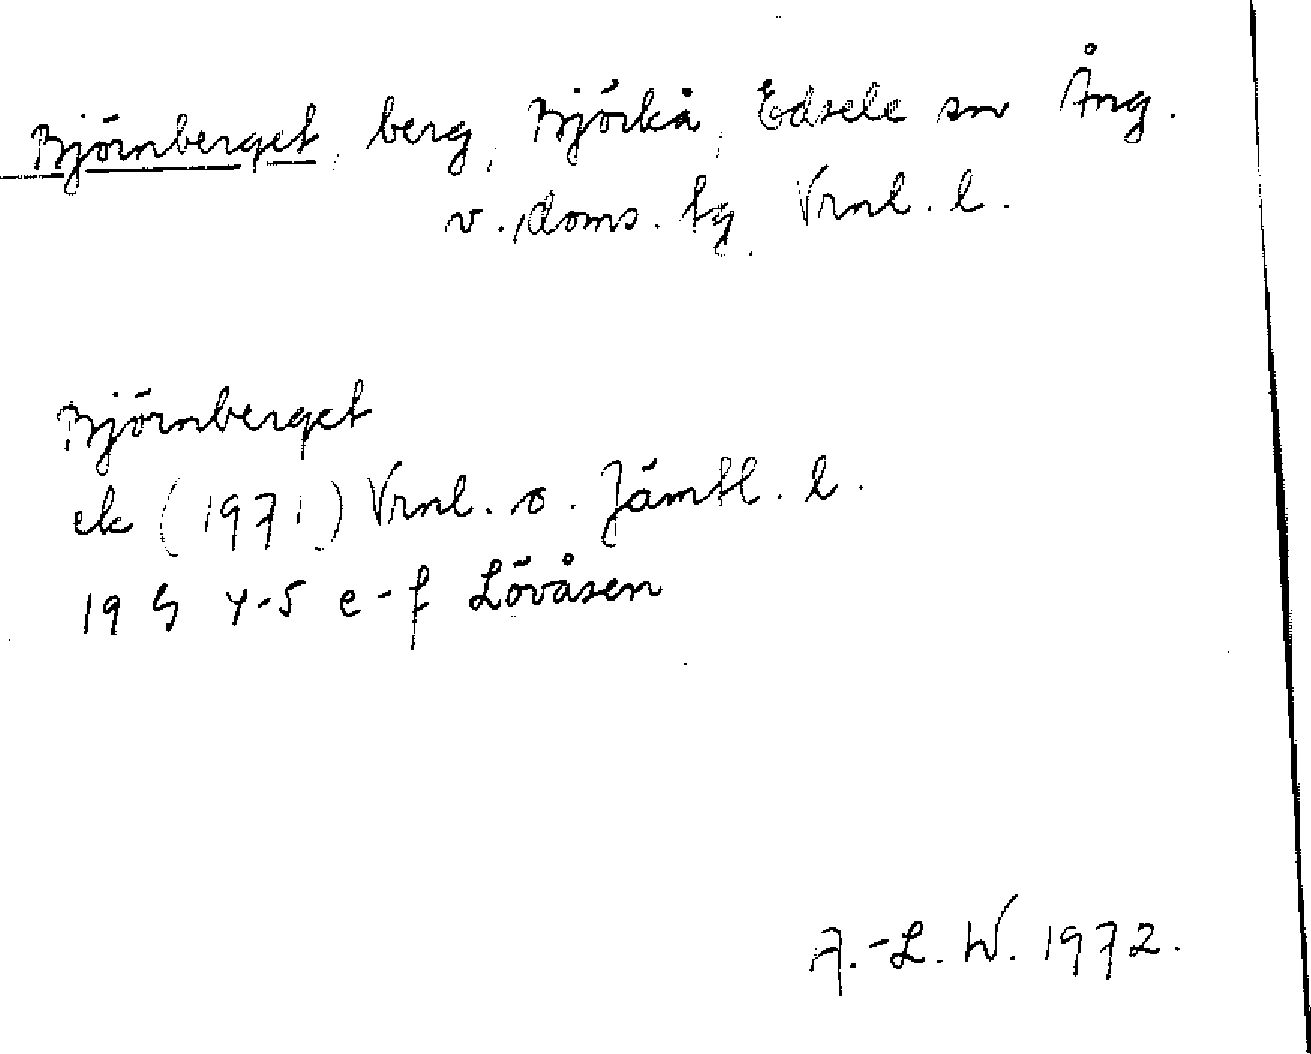 Björnberget, berg, Björkå, Edsele sn Ång.
v. doms. tg. Vrnl. l.
Björnberget
ek (1971) Vrnl. o. Jämtl. l.
19 G 4-5 e-f Lövåsen
A.-L. W. 1972.